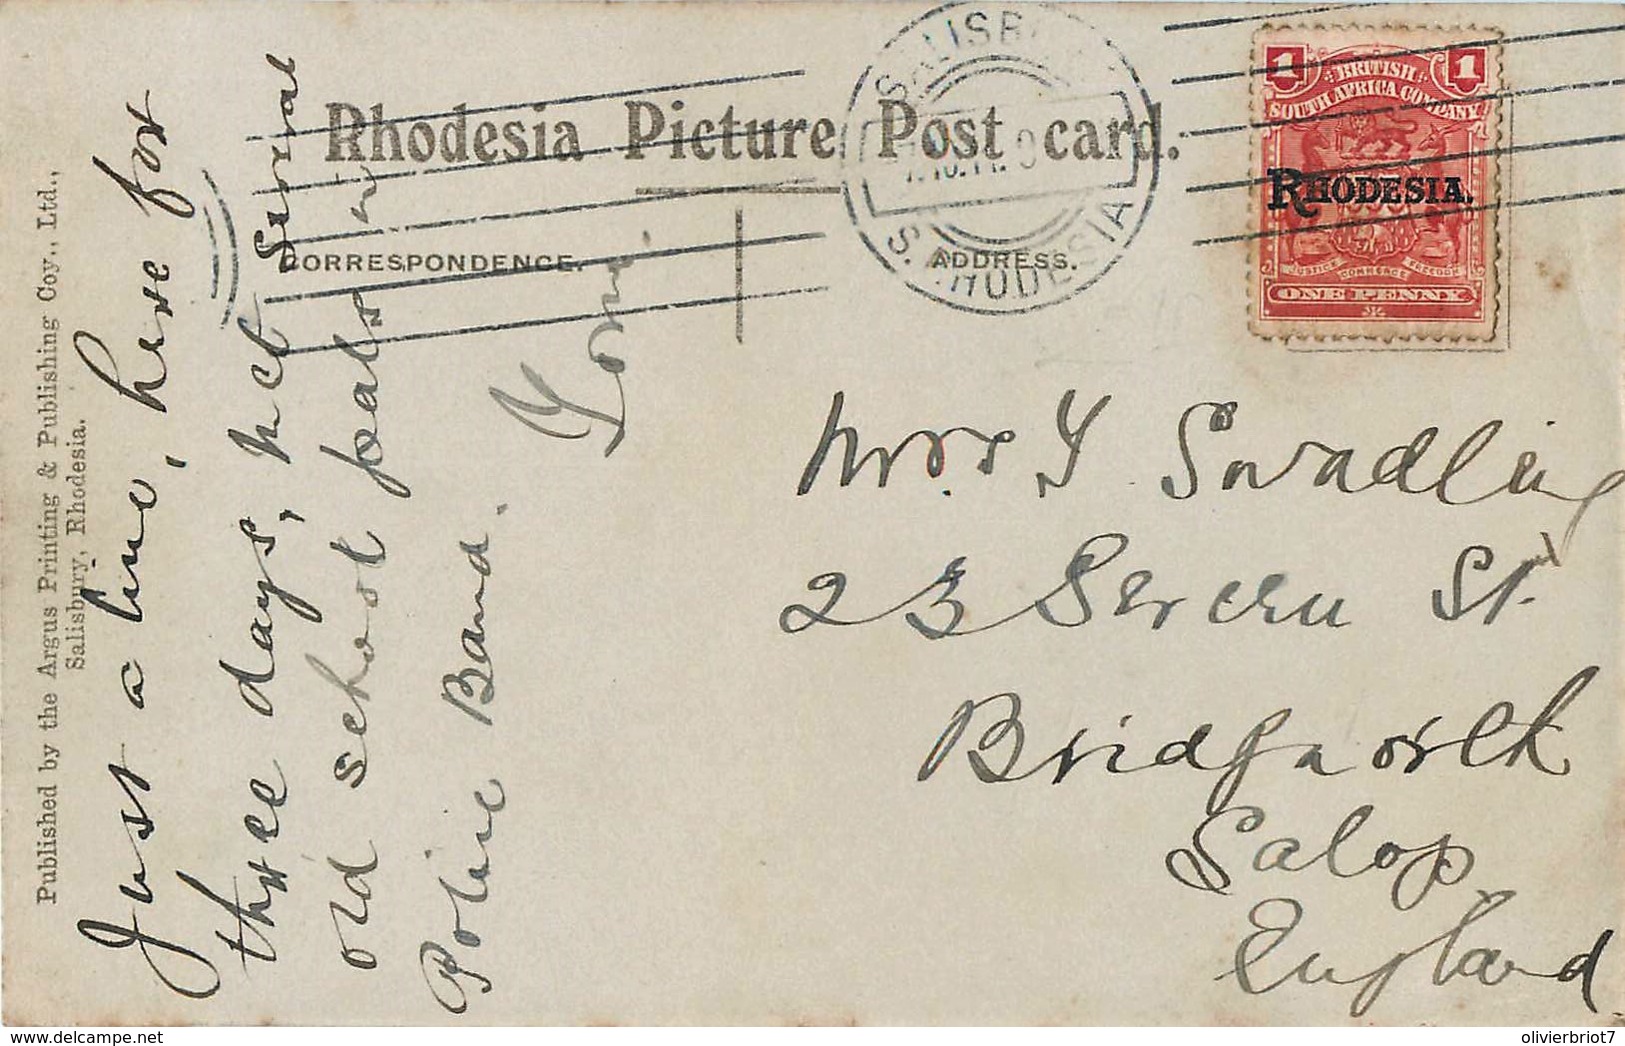 Published by the Argus Printing & Publishing Coy., Ltd.,
Salisbury, Rhodesia.
Rhodesia Picture Post card.
CORRESPONDENCE.
ADDRESS.
Just a line, here for
three days, met several
old school
Police Band.
Mrs Swadling
23 Severn St.
Bridgnorth
Salop
England
SALISB
S. RHODESIA
1 1
BRITISH
SOUTH AFRICA COMPANY
RHODESIA.
JUSTICE COMMERCE FREEDOM
ONE PENNY
olivierbriot7